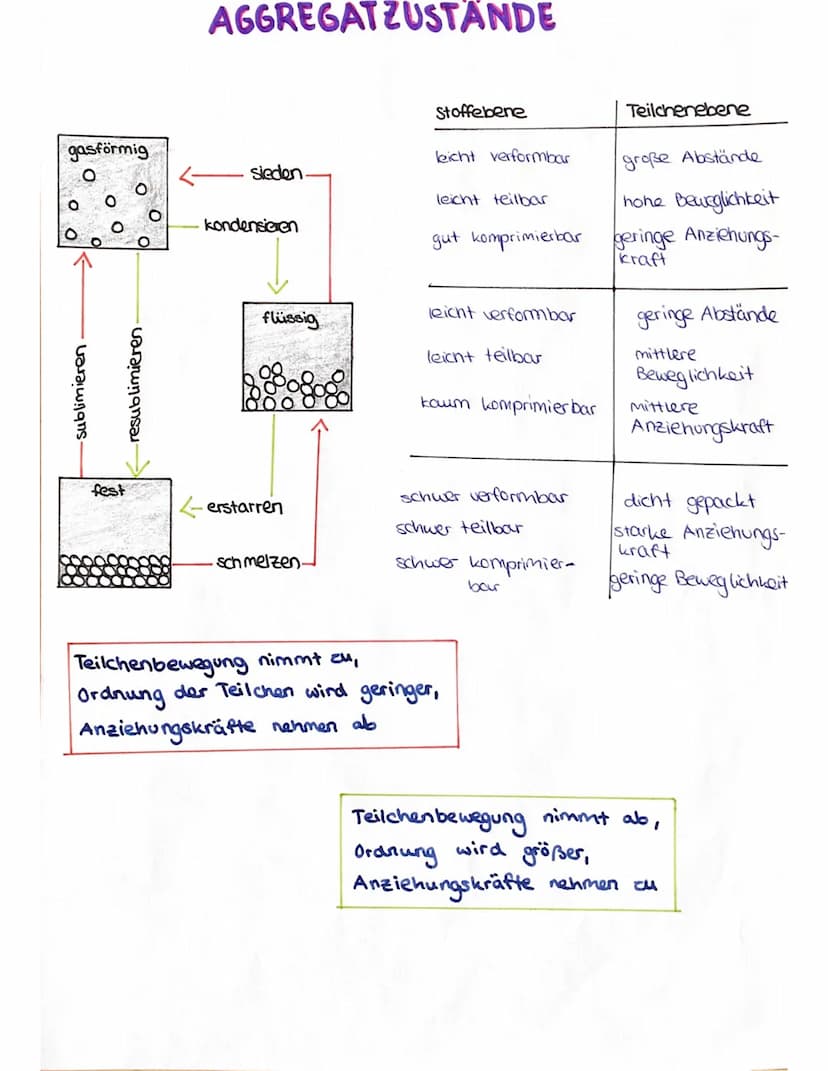 AGGREGATZUSTÄNDE
gasförmig
sieden
kondensieren
flüssig
sublimieren
resublimieren
fest
erstarren
schmelzen
Stoffebene
Teilchenebene
leicht verformbar
große Abstände
leicht teilbar
hohe Beweglichkeit
gut komprimierbar
geringe Anziehungs-
kraft
leicht verformbar
geringe Abstände
leicht teilbar
mittlere
Beweglichkeit
kaum komprimierbar
mittlere
Anziehungskraft
schwer verformbar
dicht gepackt
schwer teilbar
starke Anziehungs-
kraft
schwer komprimier-
bar
geringe Beweglichkeit
Teilchenbewegung nimmt zu,
Ordnung der Teilchen wird geringer,
Anziehungskräfte nehmen ab
Teilchenbewegung nimmt ab,
Ordnung wird größer,
Anziehungskräfte nehmen zu